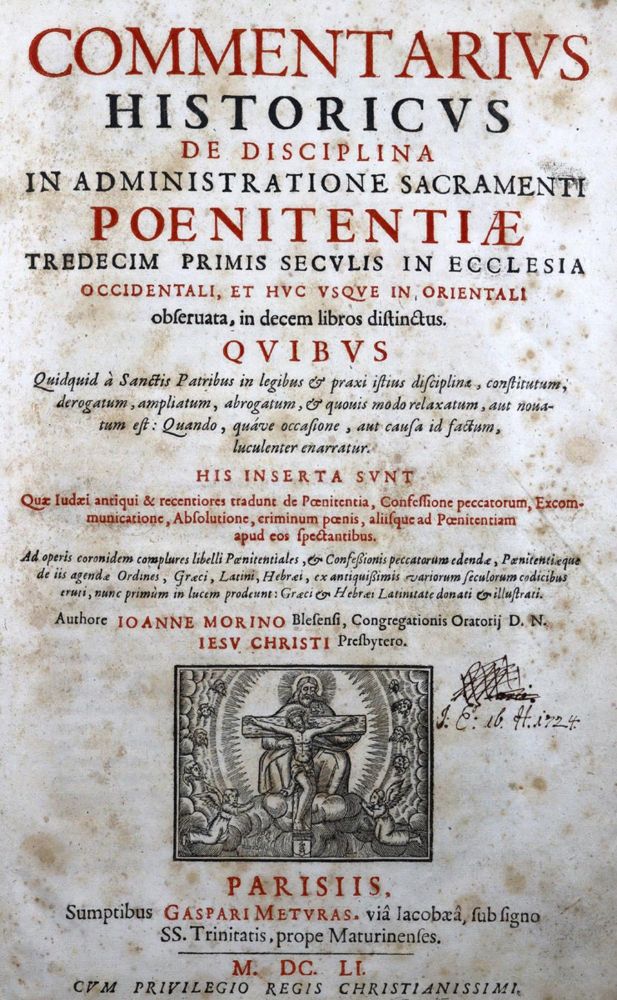 COMMENTARIVS
HISTORICVS
DE DISCIPLINA
IN ADMINISTRATIONE SACRAMENTI
POENITENTIÆ
TREDECIM PRIMIS SECVLIS IN ECCLESIA
OCCIDENTALI, ET HVC VSQVE IN ORIENTALI
obseruata, in decem libros distinctus.
QVIBVS
Quidquid à Sanctis Patribus in legibus & praxi istius disciplinæ, constitutum,
derogatum, ampliatum, abrogatum, & quouis modo relaxatum, aut noua-
tum est: Quando, quâve occasione, aut causa id factum,
luculenter enarratur.
HIS INSERTA SVNT
Quæ Iudæi antiqui & recentiores tradunt de Pœnitentia, Confessione peccatorum, Excom-
municatione, Absolutione, criminum pœnis, aliisque ad Pœnitentiam
apud eos spectantibus.
Ad operis coronidem complures libelli Pœnitentiales, & Confessionis peccatorum edendæ, Pœnitentiæque
de iis agendæ Ordines, Græci, Latini, Hebræi, ex antiquissimis variorum seculorum codicibus
eruti, nunc primùm in lucem prodeunt: Græci & Hebræi Latinitate donati & illustrati.
Authore IOANNE MORINO Blesensi, Congregationis Oratorij D. N.
IESV CHRISTI Presbytero.
J. E. 16. H. 1724
PARISIIS,
Sumptibus GASPARI METVRAS. viâ Iacobæâ, sub signo
SS. Trinitatis, prope Maturinenses.
M. DC. LI.
CVM PRIVILEGIO REGIS CHRISTIANISSIMI.